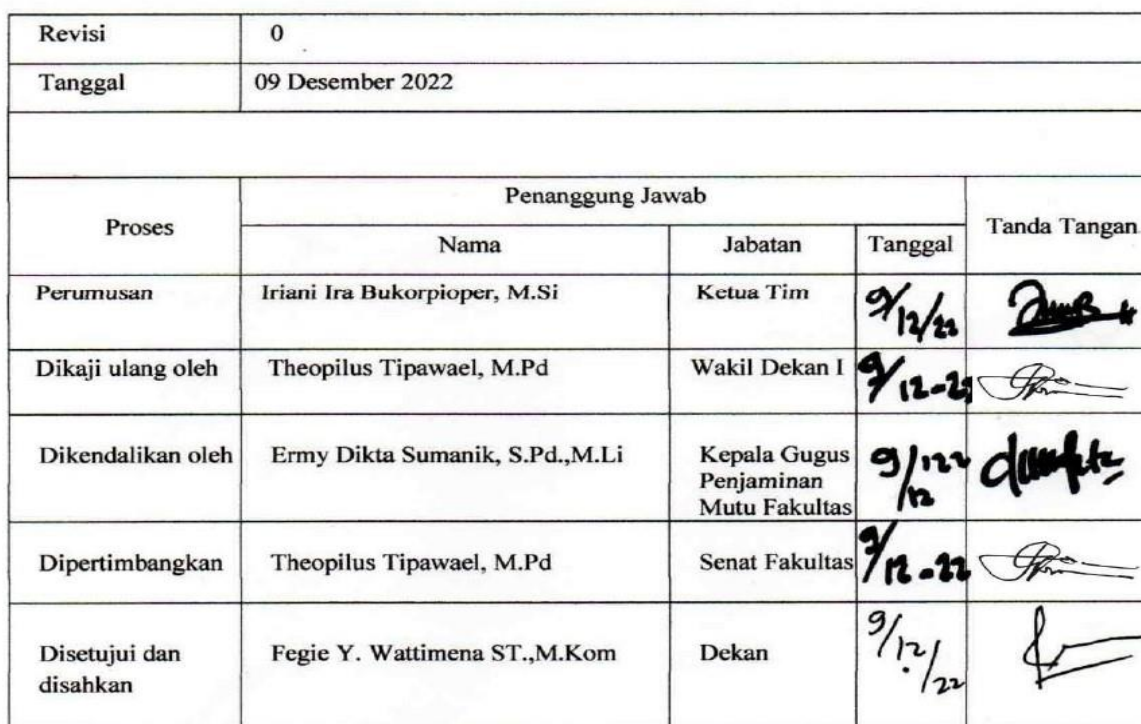 Revisi 0
Tanggal 09 Desember 2022
Penanggung Jawab
Proses Nama Jabatan Tanggal Tanda Tangan
Perumusan Iriani Ira Bukorpioper, M.Si Ketua Tim 9/12/22
Dikaji ulang oleh Theopilus Tipawael, M.Pd Wakil Dekan I 9/12-22
Dikendalikan oleh Ermy Dikta Sumanik, S.Pd.,M.Li Kepala Gugus
Penjaminan
Mutu Fakultas
9/12 22
Dipertimbangkan Theopilus Tipawael, M.Pd Senat Fakultas 9/12-22
Disetujui dan
disahkan
Fegie Y. Wattimena ST.,M.Kom Dekan 9/12/22